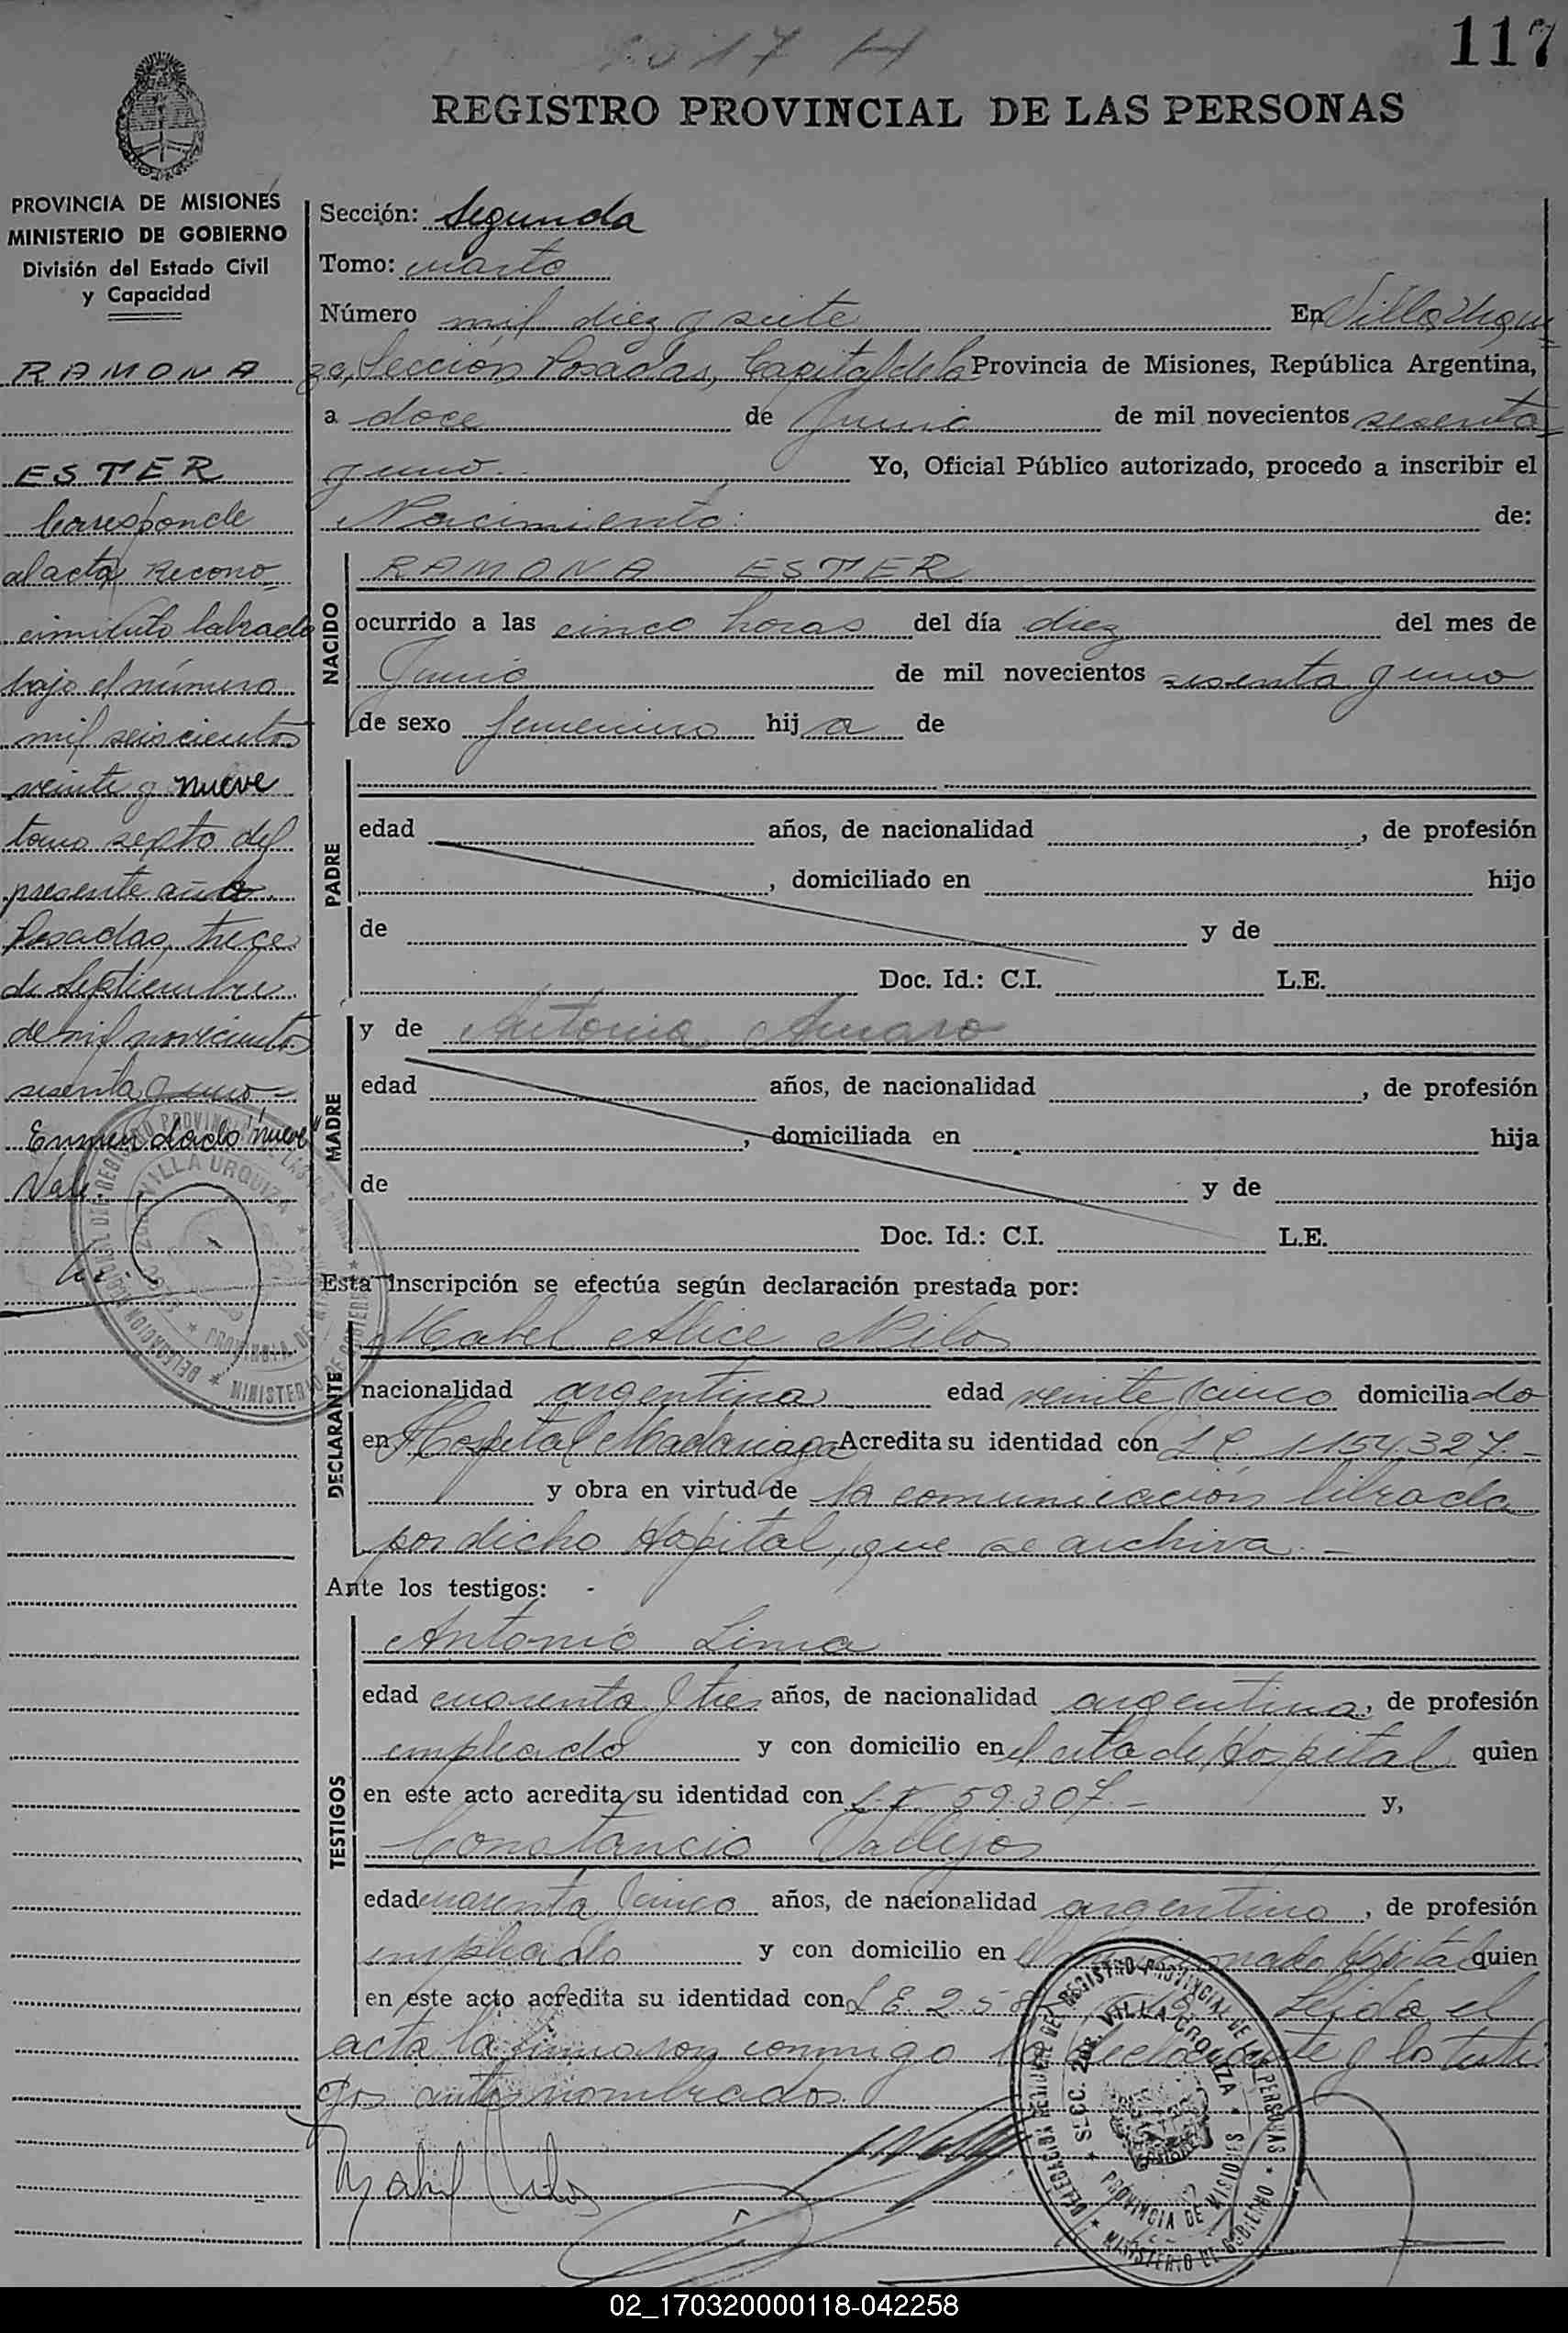 1017 H
117
REGISTRO PROVINCIAL DE LAS PERSONAS
PROVINCIA DE MISIONES
MINISTERIO DE GOBIERNO
División del Estado Civil
y Capacidad
RAMONA
ESTER
Corresponde
al acta Recono-
cimiento labrado
bajo el número
mil seiscientos
veinte y nueve
tomo sexto del
presente año
Posadas, trece
de Septiembre
de mil novecientos
sesenta y uno-
Enmendado "nueve"
Vale.
Sección: Segunda
Tomo: cuarto
Número mil diez y siete En Villa Urqui-
za, Sección Posadas, Capital de la Provincia de Misiones, República Argentina,
a doce de Junio de mil novecientos sesenta
y uno Yo, Oficial Público autorizado, procedo a inscribir el
Nacimiento de:
NACIDO
RAMONA ESTER
ocurrido a las cinco horas del día diez del mes de
Junio de mil novecientos sesenta y uno
de sexo femenino hija de
PADRE
edad años, de nacionalidad , de profesión
, domiciliado en hijo
de y de
Doc. Id.: C.I. L.E.
MADRE
y de Antonia Amaro
edad años, de nacionalidad , de profesión
, domiciliada en hija
de y de
Doc. Id.: C.I. L.E.
Esta inscripción se efectúa según declaración prestada por:
DECLARANTE
Mabel Alice Nilos
nacionalidad argentina edad veinte y cinco domiciliado
en Hospital Madariaga Acredita su identidad con L C. 1154327.-
y obra en virtud de la comunicación librada
por dicho Hospital, que se archiva.-
Ante los testigos: -
TESTIGOS
Antonio Lima
edad cuarenta y tres años, de nacionalidad argentina, de profesión
empleado y con domicilio en el cita do Hospital quien
en este acto acredita su identidad con 59.307.- y,
Constancio Vallejos
edad cuarenta y cinco años, de nacionalidad argentino, de profesión
empleado y con domicilio en el Hospital quien
en este acto acredita su identidad con L E. 2.58 Leída el
acta la firmaron conmigo la declarante y los testi-
gos antes nombrados.
Mabel Nilos
DELEGACION DEL REGISTRO PROVINCIAL DE LAS PERSONAS
SECC. 2da. VILLA URQUIZA
PROVINCIA DE MISIONES
MINISTERIO DE GOBIERNO
02_170320000118-042258